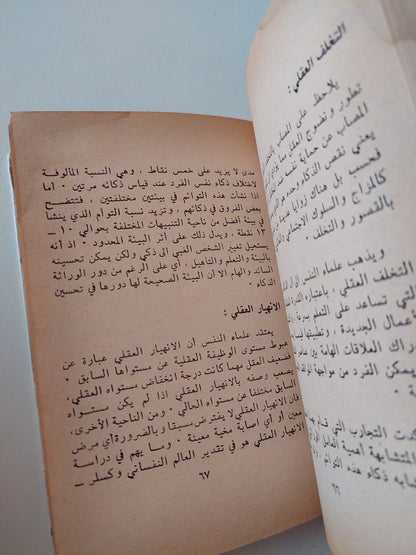 التخلف العقلي :
يلاحظ على المصاب بالتخلف
تطور ونضوج العقل مما
المصاب عن حماية نفسه
يعني نقص الذكاء وحده
فحسب بل هناك زوايا
كالمزاج والسلوك الاجتماعي
بالقصور والتخلف .
ويذهب علماء النفس ان
التخلف العقلي ، باعتباره
التي تساعد على التعلم بسرعة
الأعمال الجديدة ، وتطبيقها
ادراك العلاقات الهامة بين
يمكن الفرد من مواجهة
التجارب التي
المتشابهة أهمية العامل
ذكاء هذه التوائم
٦٦
مدى لا يزيد على خمس نقاط ، وهي النسبة المألوفة
لاختلاف ذكاء نفس الفرد عند قياس ذكائه مرتين . أما
اذا نشأت هذه التوائم في بيئتين مختلفتين ، فتتضح
بعض الفروق في ذكائهم ، وتزيد نسبة التوأم الذي ينشأ
في بيئة أفضل من ناحية التنبيهات المختلفة بحوالي ١٠ –
١٣ نقطة . ويدل ذلك على أثر البيئة المحدود . اذ أنه
يستحيل تغيير الشخص الغبي الى ذكي ولكن يمكن تحسينه
بالبيئة والتعلم والتأهيل ، أي على الرغم من دور الوراثة
السائد والهام الا أن البيئة الصحيحة لها دورها في تحسين
الذكاء .
الانهيار العقلي :
يعتقد علماء النفس أن الانهيار العقلي عبارة عن
هبوط مستوى الوظيفة العقلية عن مستواها السابق .
فضعيف العقل مهما كانت درجة انخفاض مستواه العقلي،
يصعب وصفه بالانهيار العقلي اذا لم يكن مستواه
السابق مختلفا عن مستواه الحالي . ومن الناحية الأخرى،
فان الانهيار العقلي لا يفترض مسبقا وبالضرورة أي مرض
معين أو أي اصابة مخية معينة . وما يهم في دراسة
الانهيار العقلي هو في تقدير العالم النفساني وكسلر –
٦٧